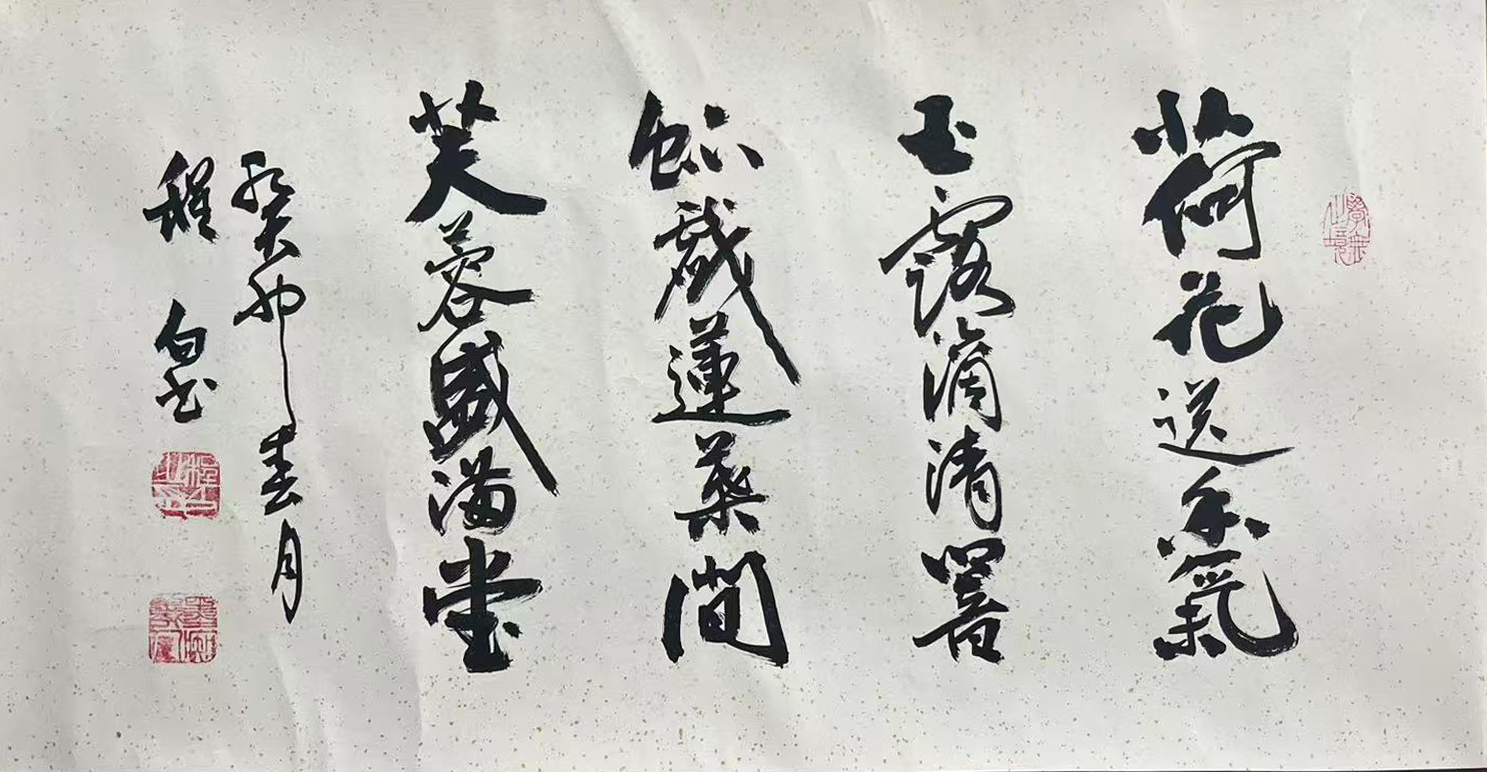 荷花送香氣
玉露滴清署
戲蓮葉間
芙蓉盛滿堂
癸卯春月
程白书